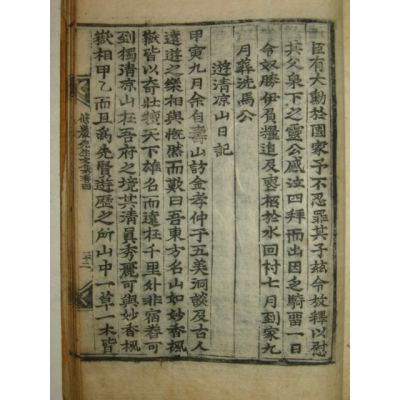 臣有大勳於國家予不忍罪其子玆令放釋以慰
其父泉下之靈公感泣四拜而出因乏騎留一日
令奴勝伊負糧追及喪柩於水回村七月到家九
月葬洗馬公
遊清凉山日記
甲寅九月余自壽山訪金孝仲于五美洞談及古人
遠遊之樂相與慨然而歎曰吾東方名山如妙香楓
嶽皆以奇壯擅天下雄名而遠在千里外非宿舂可
到獨清凉山在吾府之境其清眞秀麗可與妙香楓
嶽相甲乙而且爲先賢遊歷之所山中一草一木皆
修巖先生文集卷四